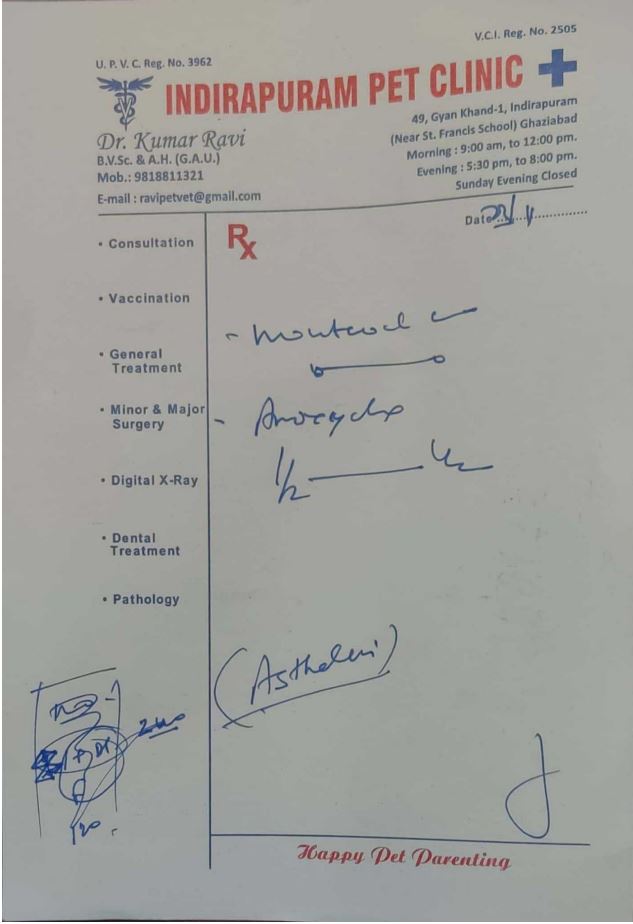 V.C.I. Reg. No. 2505
U. P. V. C. Reg. No. 3962
INDIRAPURAM PET CLINIC
Dr. Kumar Ravi
B.V.Sc. & A.H. (G.A.U.)
Mob.: 9818811321
E-mail : ravipetvet@gmail.com
49, Gyan Khand-1, Indirapuram
(Near St. Francis School) Ghaziabad
Morning : 9:00 am, to 12:00 pm.
Evening : 5:30 pm, to 8:00 pm.
Sunday Evening Closed
Date
Rx
• Consultation
• Vaccination
• General
Treatment
• Minor & Major
Surgery
• Digital X-Ray
• Dental
Treatment
• Pathology
1/2 — 1/2
(Asthalin)
Happy Pet Parenting